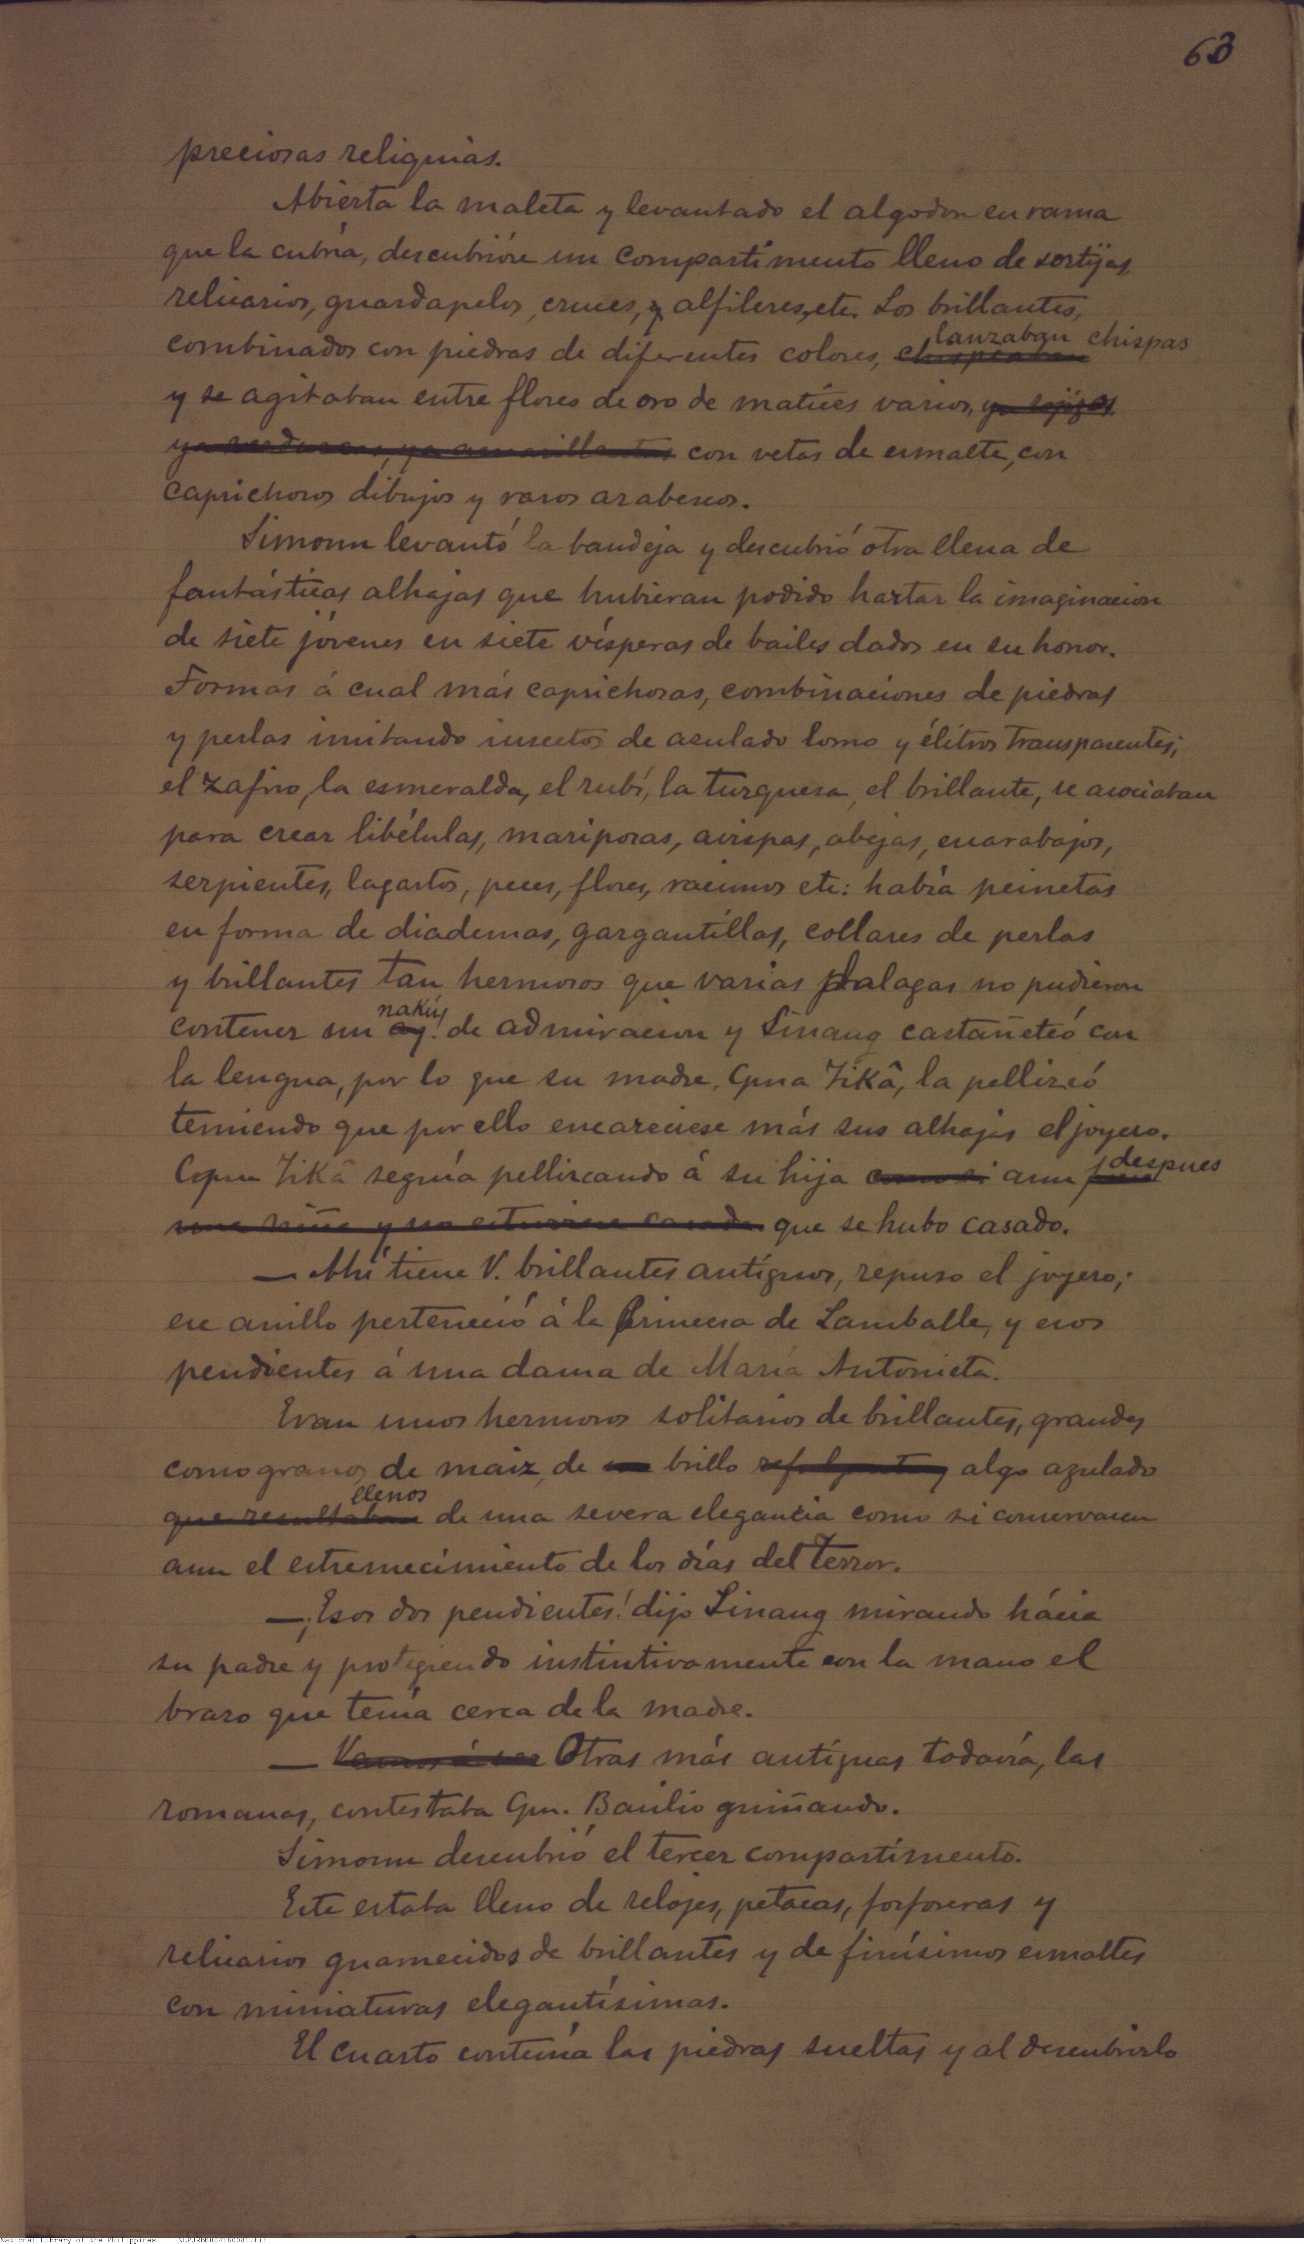 63
preciosas reliquias.
Abierta la maleta y levantado el algodon en rama
que la cubría, descubrióse un compartimento lleno de sortijas,
relicarios, guardapelos, cruces, y alfileres, etc. Los brillantes,
combinados con piedras de diferentes colores, chispeaban lanzaban chispas
y se agitaban entre flores de oro de matices varios, ya rojizos
ya verduzcas, ya amarillentas con vetas de esmalte, con
caprichosos dibujos y raros arabescos.
Simoun levantó la bandeja y descubrió otra llena de
fantásticas alhajas que hubieran podido hartar la imaginacion
de siete jóvenes en siete vísperas de bailes dados en su honor.
Formas á cual más caprichosas, combinaciones de piedras
y perlas imitando insectos de azulado lomo y élitros transparentes;
el zafiro, la esmeralda, el rubí, la turquesa, el brillante, se asociaban
para crear libélulas, mariposas, avispas, abejas, escarabajos,
serpientes, lagartos, peces, flores, racimos etc: había peinetas
en forma de diademas, gargantillas, collares de perlas
y brillantes tan hermosos que varias dalagas no pudieron
contener un ay! nakú de admiracion y Sinang castañeteó con
la lengua, por lo que su madre, Cpna Tikâ, la pellizcó
temiendo que por ello encareciese más sus alhajas el joyero.
Cspna Tikâ seguía pellizcando á su hija como si aun fuese despues
una niña y no estuviese casada que se hubo casado.
— Ahí tiene V. brillantes antíguos, repuso el joyero;
ese anillo perteneció á la Princesa de Lamballe, y esos
pendientes á una dama de María Antonieta.
Eran unos hermosos solitarios de brillantes, grandes
como granos de maiz, de un brillo refulgente y algo azulado
que resultaban llenos de una severa elegancia como si conservasen
aun el estremecimiento de los días del Terror.
— ¡Esos dos pendientes! dijo Sinang mirando hácia
su padre y protegiendo instintivamente con la mano el
brazo que tenía cerca de la madre.
— Vamos á ver Otras más antíguas todavía, las
romanas, contestaba Cpn. Basilio guiñando.
Simoun descubrió el tercer compartimento.
Este estaba lleno de relojes, petacas, fosforeras y
relicarios guarnecidos de brillantes y de finísimos esmaltes
con miniaturas elegantísimas.
El cuarto contenía las piedras sueltas y al descubrirlo